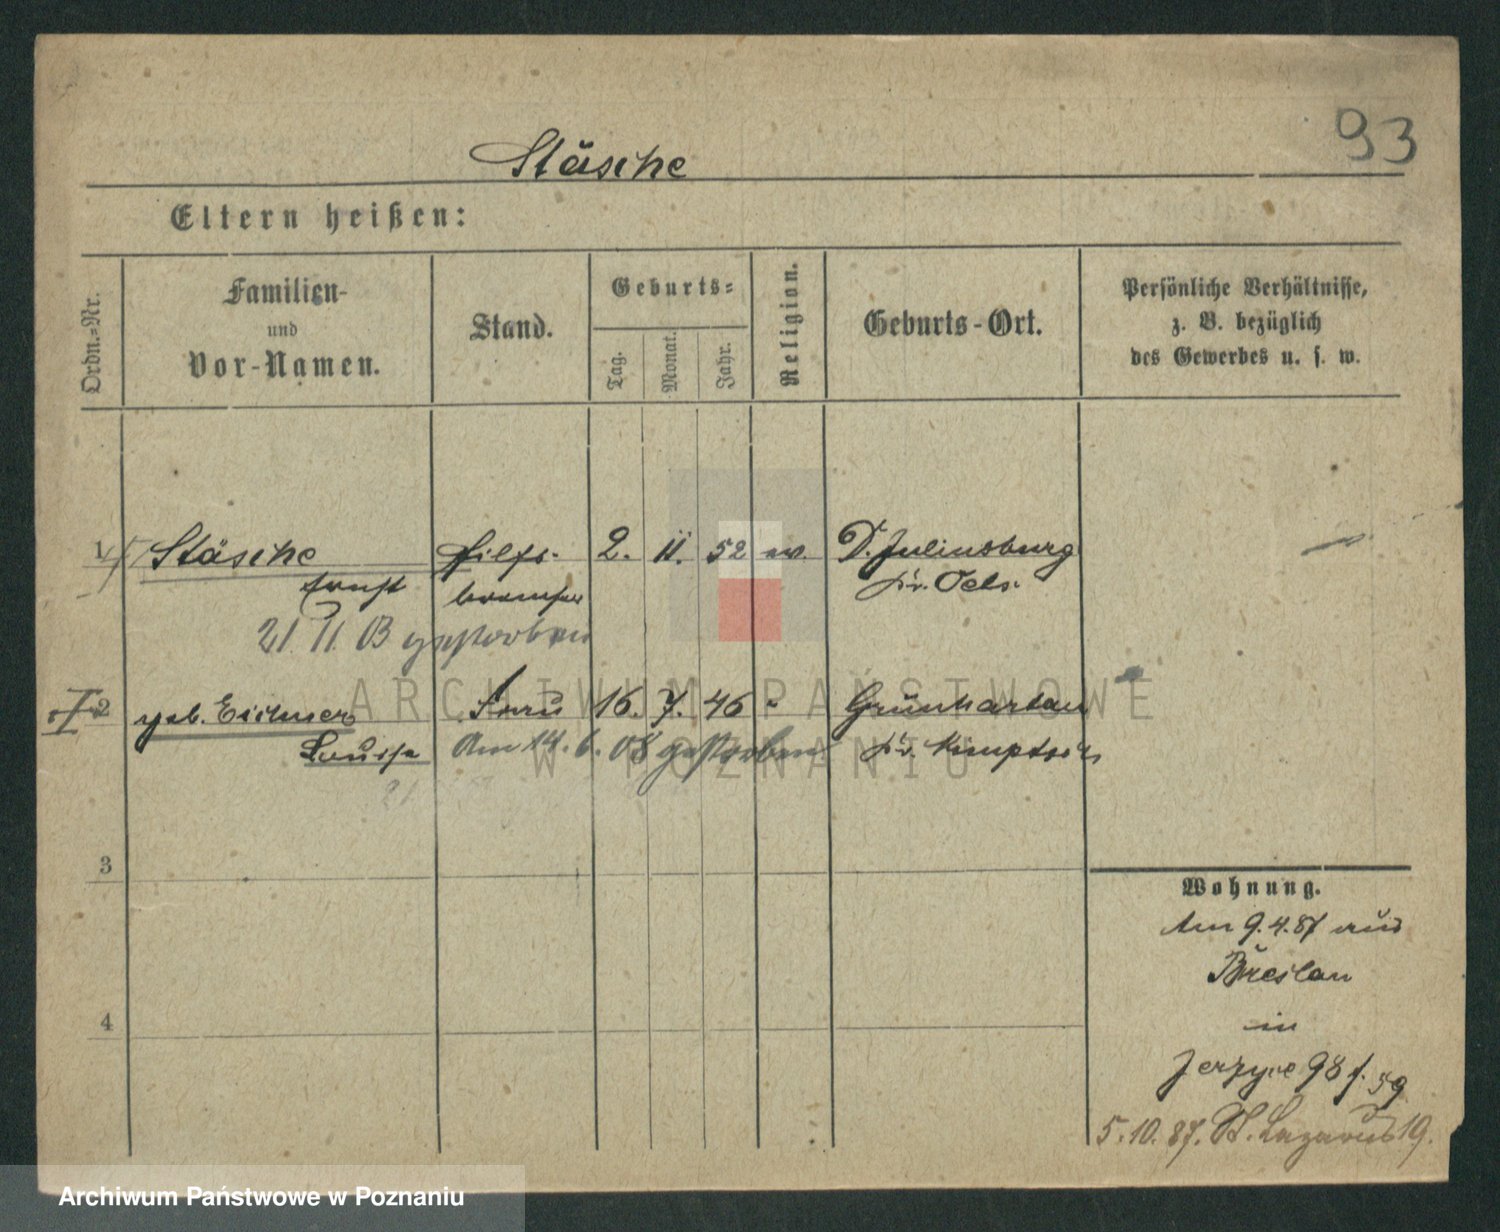 93
Stäsche
Eltern heißen:
Ordn.-Nr.
Familien-
und
Vor-Namen.
Stand.
Geburts-
Tag.
Monat.
Jahr.
Religion.
Geburts-Ort.
Persönliche Verhältnisse,
z. B. bezüglich
des Gewerbes u. s. w.
1 Stäsche Hilfs- 2. 11. 52 ev. D. Juliusburg
Ernst bremser Kr. Oels.
21 11 03 gestorben
2 geb. Eichner Frau 16. 7. 46 " Grünhartau
Louise Am 14. 6. 08 gestorben Kr. Nimptsch
3
4
Wohnung.
Am 9. 4. 87 aus
Breslau
in
Jerzyce 98 f. 59
5. 10. 87. St. Lazarus 19.
ARCHIWUM PAŃSTWOWE
W POZNANIU
Archiwum Państwowe w Poznaniu